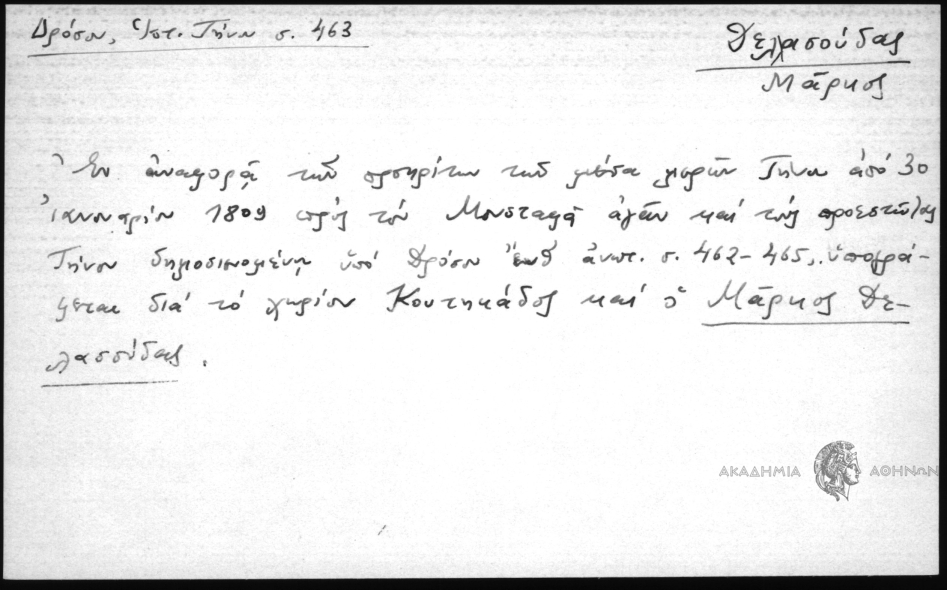 Δρόσου, Ἱστ. Τήνου σ. 463
Δελασούδας
Μάρκος
Ἐν ἀναφορᾷ τῶν τῶν μέσα μερῶν Τήνου ἀπὸ 30
Ἰανουαρίου 1809 πρὸς τὸν Μουσταφᾶ ἀγᾶν καὶ τοὺς προεστῶτας
Τήνου δημοσιευομένῃ ὑπὸ Δρόσου ἔνθ ἀνωτ. σ. 462-465, ὑπογρά-
φεται διὰ τὸ χωρίον Κουτηκάδος καὶ ὁ Μάρκος Δε-
λασσούδας.
ΑΚΑΔΗΜΙΑ ΑΘΗΝΩΝ